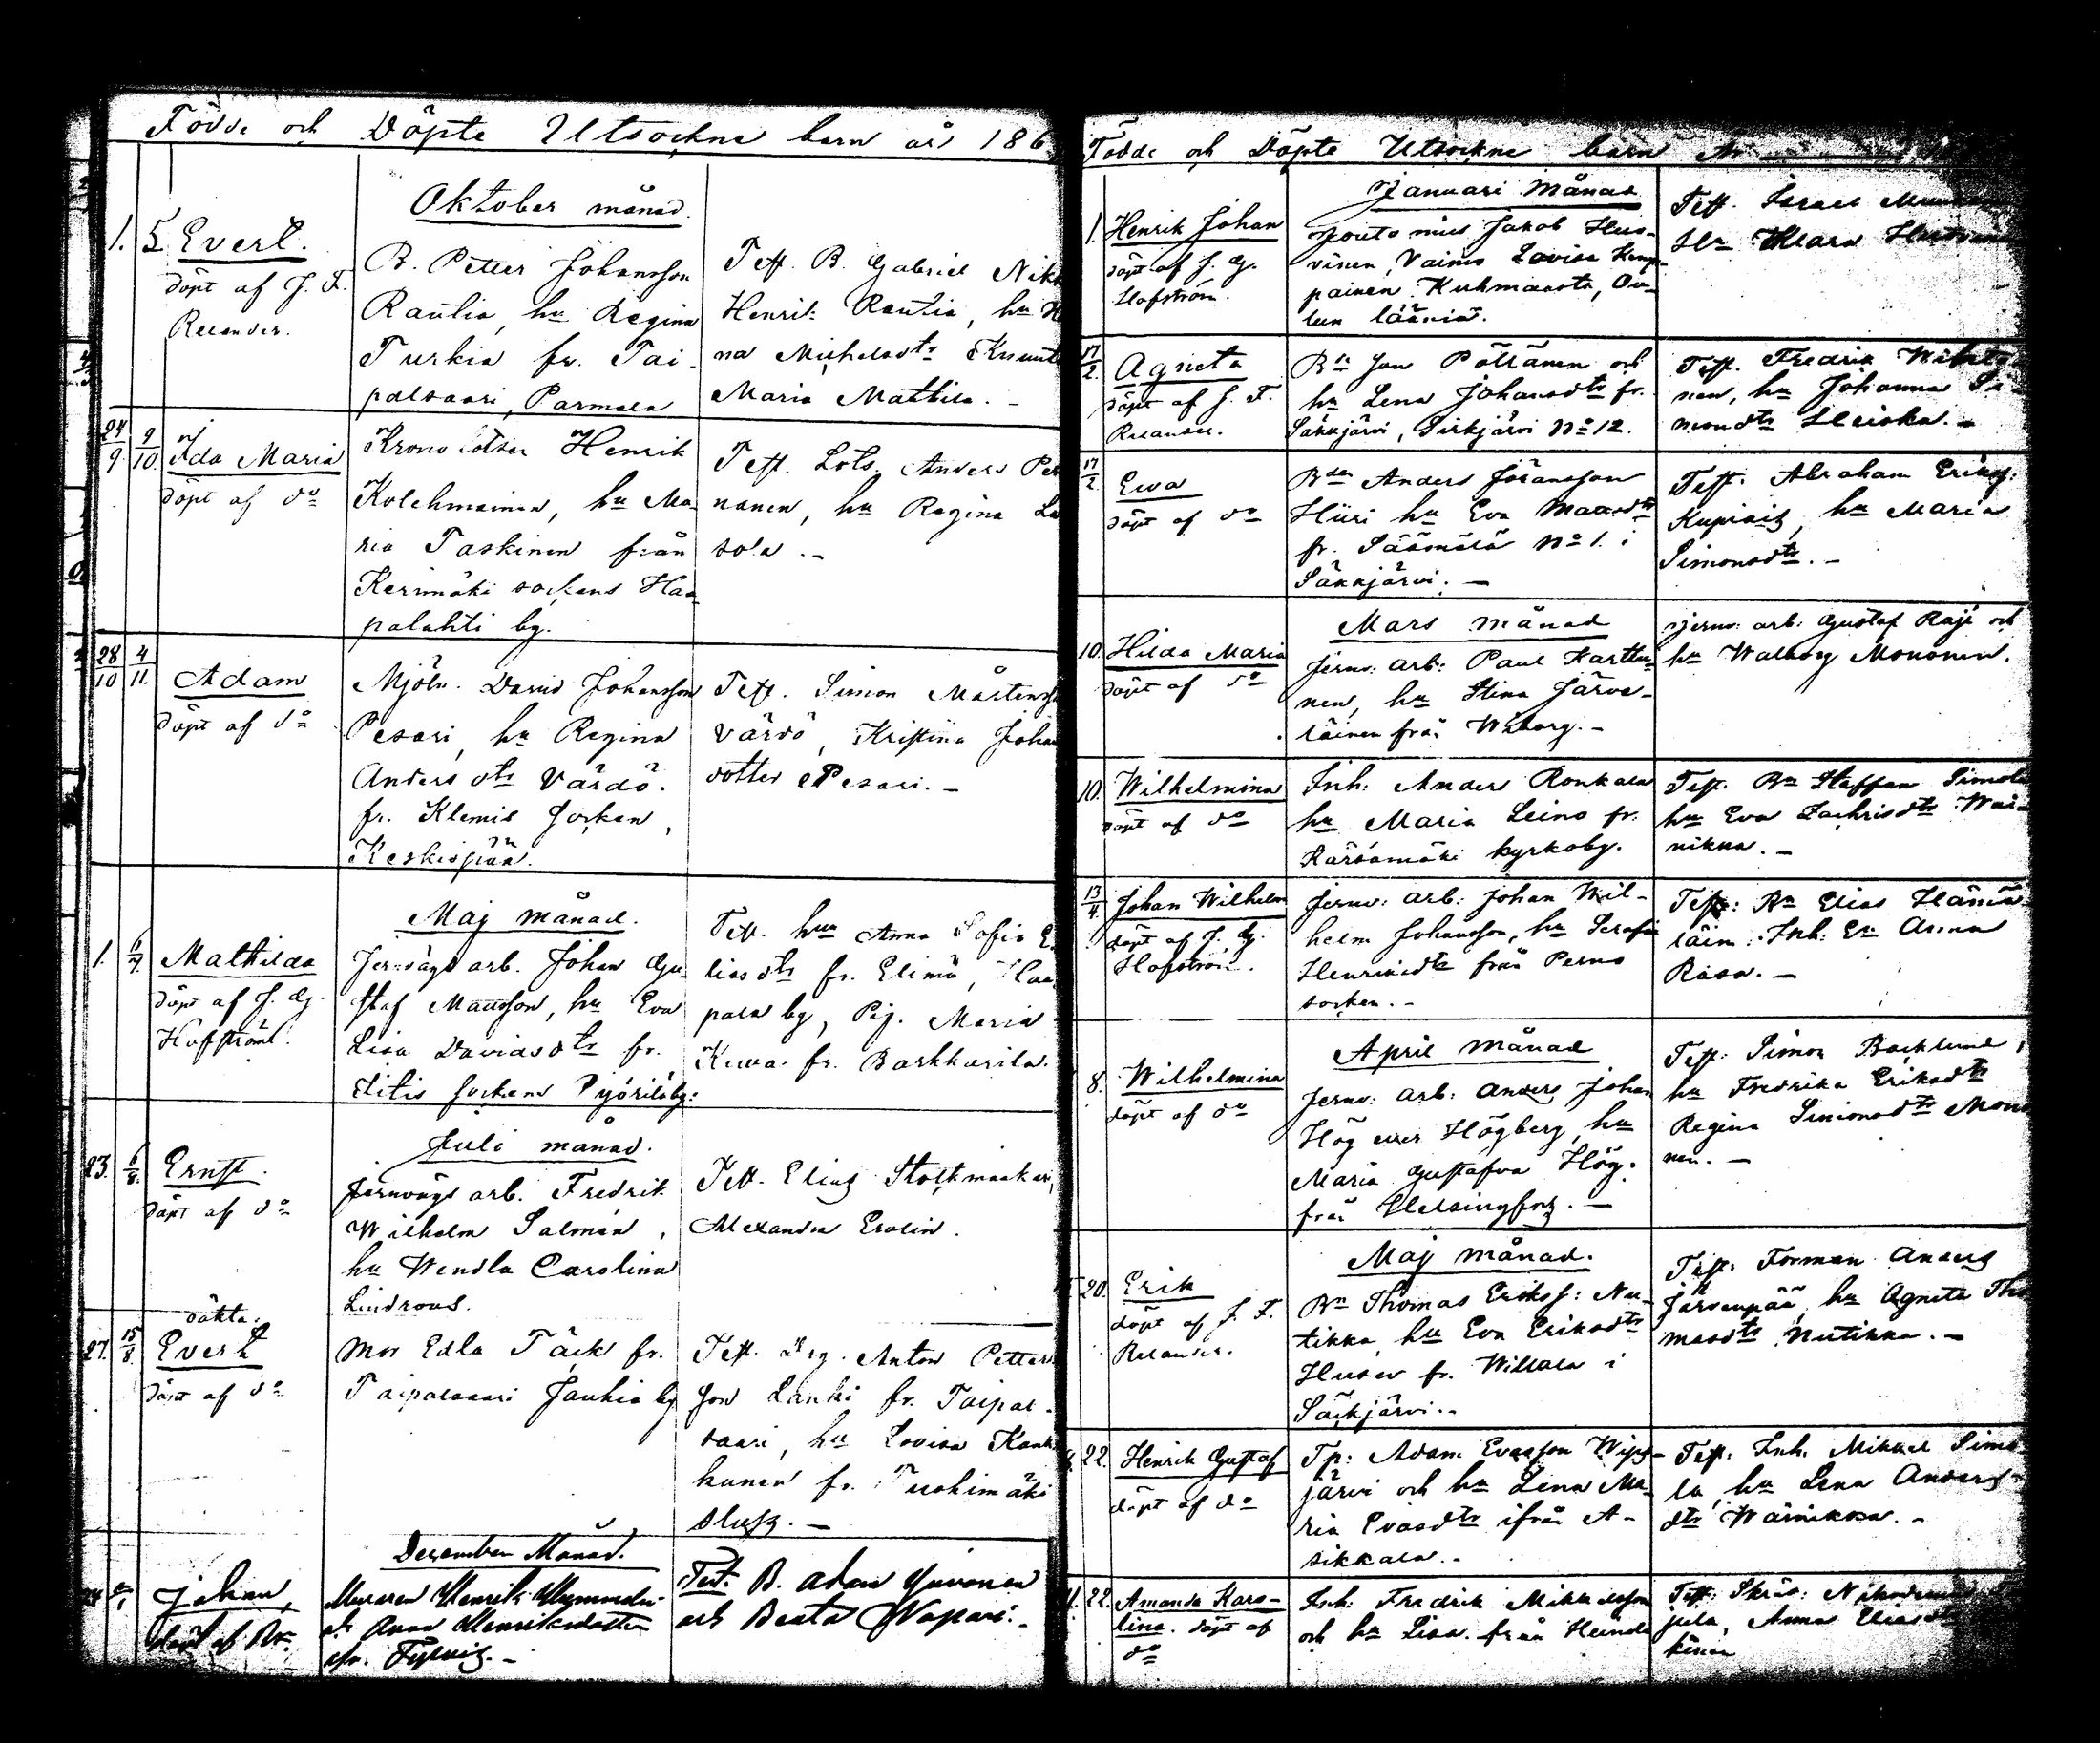 Födde och Döpte Utsockne barn år 186
Oktober månad.
1. 5 Evert.
döpt af J. F.
Relander.
B. Petter Johansson
Rautia, hu Regina
Turkia fr. Tai-
palsaari, Parmala
Test. B. Gabriel
Henrik Rautia, hu
na Michelsdtr
Maria Mattila. -
24/9 9/10 Ida Maria
döpt af do
Kronolotsen Henrik
Kolehmainen, hu Ma-
ria Taskinen från
Kerimäki sockens Haa-
palahti by.
Test. Lots. Anders
nanen, hu Regina
sola. -
28/10 4/11. Adam
döpt af do
Mjöln. David Johansson
Pesari, hu Regina
Anders dtr Värdö.
fr. Klemis Socken,
Keskispää.
Test. Simon
Värdö, Kristina
dotter Pesari. -
Maj månad.
1. 6/7. Mathilda
döpt af J. G.
Hofström.
Jernvägs arb. Johan Gu-
staf Mansson, hu Eva
Lisa Davidsdtr fr.
Litis Sockens Pyörilä by:
Test. hu Anna Sofia E
liasdtr fr. Elimä, Haa
pala by, Pig. Maria
fr. Barkkarila.
Juli månad.
23. 6/8. Ernst.
döpt af do
Jernvägs arb. Fredrik
Wilhelm Salmén,
hu Wendla Carolina
Lindroos.
Test. Elias
Alexandra Erolin.
oäkta.
27. 15/8. Evert
döpt af do
Mor Edla Täck fr.
Taipalsaari Jauhiala by
Test. Drg. Anton Petters
son Lanki fr. Taipal-
saari, hu Lovisa
hunen fr. Tuohimäki
sluss. -
December Månad.
Johan,
döpt af
Muraren Henrik
och Anna Henriksdotter
Test. B. Adam Yuvonen
och Beata Napari. -
Födde och Döpte Utsockne barn År
Januari Månad
1. Henrik Johan
döpt af J. G.
Hofström.
Pouto mies Jakob Hus-
vinen, Vaimo Lovisa
painen Kuhmaasta, Ou-
lun lääniä.
Test. Israel
Hu Klara
17/2. Agneta
döpt af J. F.
Relander.
Bn Jon Pöllänen och
hu Lena Johansdtr fr.
Säkkjärvi, Sirkjärvi No 12.
Test. Fredrik
nen, hu Johanna Si
monsdtr Heiska. -
17/2. Ewa
döpt af do
Bdn Anders Jöransson
Hiiri hu Eva
fr. Säämälä No 1. i
Säkkjärvi. -
Test. Abraham Erikss:
Kupiais, hu Maria
Simonsdtr. -
Mars månad
10. Hilda Maria
döpt af do
Jernv: arb: Paul Karttu-
nen, hu Stina Järve-
läinen från Wiborg. -
Jernv: arb: Gustaf Raji och
hu Walborg Mononen.
10. Wilhelmina
döpt af do
Inh: Anders Ronkala
hu Maria Leino fr.
Kärsämäki kyrkoby.
Test. Bn Staffan Simola
hu Eva Zachrisdtr Wai-
nikka. -
13/4. Johan Wilhelm
döpt af J. G.
Hofström.
Jernv: arb: Johan Wil-
helm Johansson, hu Serafia
Henriksdtr från Perno
socken. -
Test: Bn Elias Hämä-
läin: Inh: En Anna
Rasa. -
April Månad
8. Wilhelmina
döpt af do
Jernv: arb: Anders Johan
Hög eller Högberg, hu
Maria Gustafva Hög.
från Helsingfors. -
Test: Simon Backlund,
hu Fredrika Eriksdtr
Regina Simonsdtr Mono
nen. -
Maj månad.
20. Erik
döpt af J. F.
Relander.
Bn Thomas Erikss: Nu-
tikka, hu Eva Eriksdtr
Husu fr. Willala i
Säckjärvi. -
Test: Forman Anders
Järvenpää, hu Agneta Tho
masdtr Nutikka. -
22. Henrik Gustaf
döpt af do
Tp: Adam Evasson
järvi och hu Lena Ma-
ria Evasdtr ifrån A-
sikkala. -
Test: Inh: Mikkel Simo
la, hu Lena Anders-
dtr Wärnikka. -
22. Amanda Karo-
lina. döpt af
do
Inh: Fredrik Mikkelsson
och hu Lisa. från Heinola
Test: Skräd:
Anna Eliasdtr